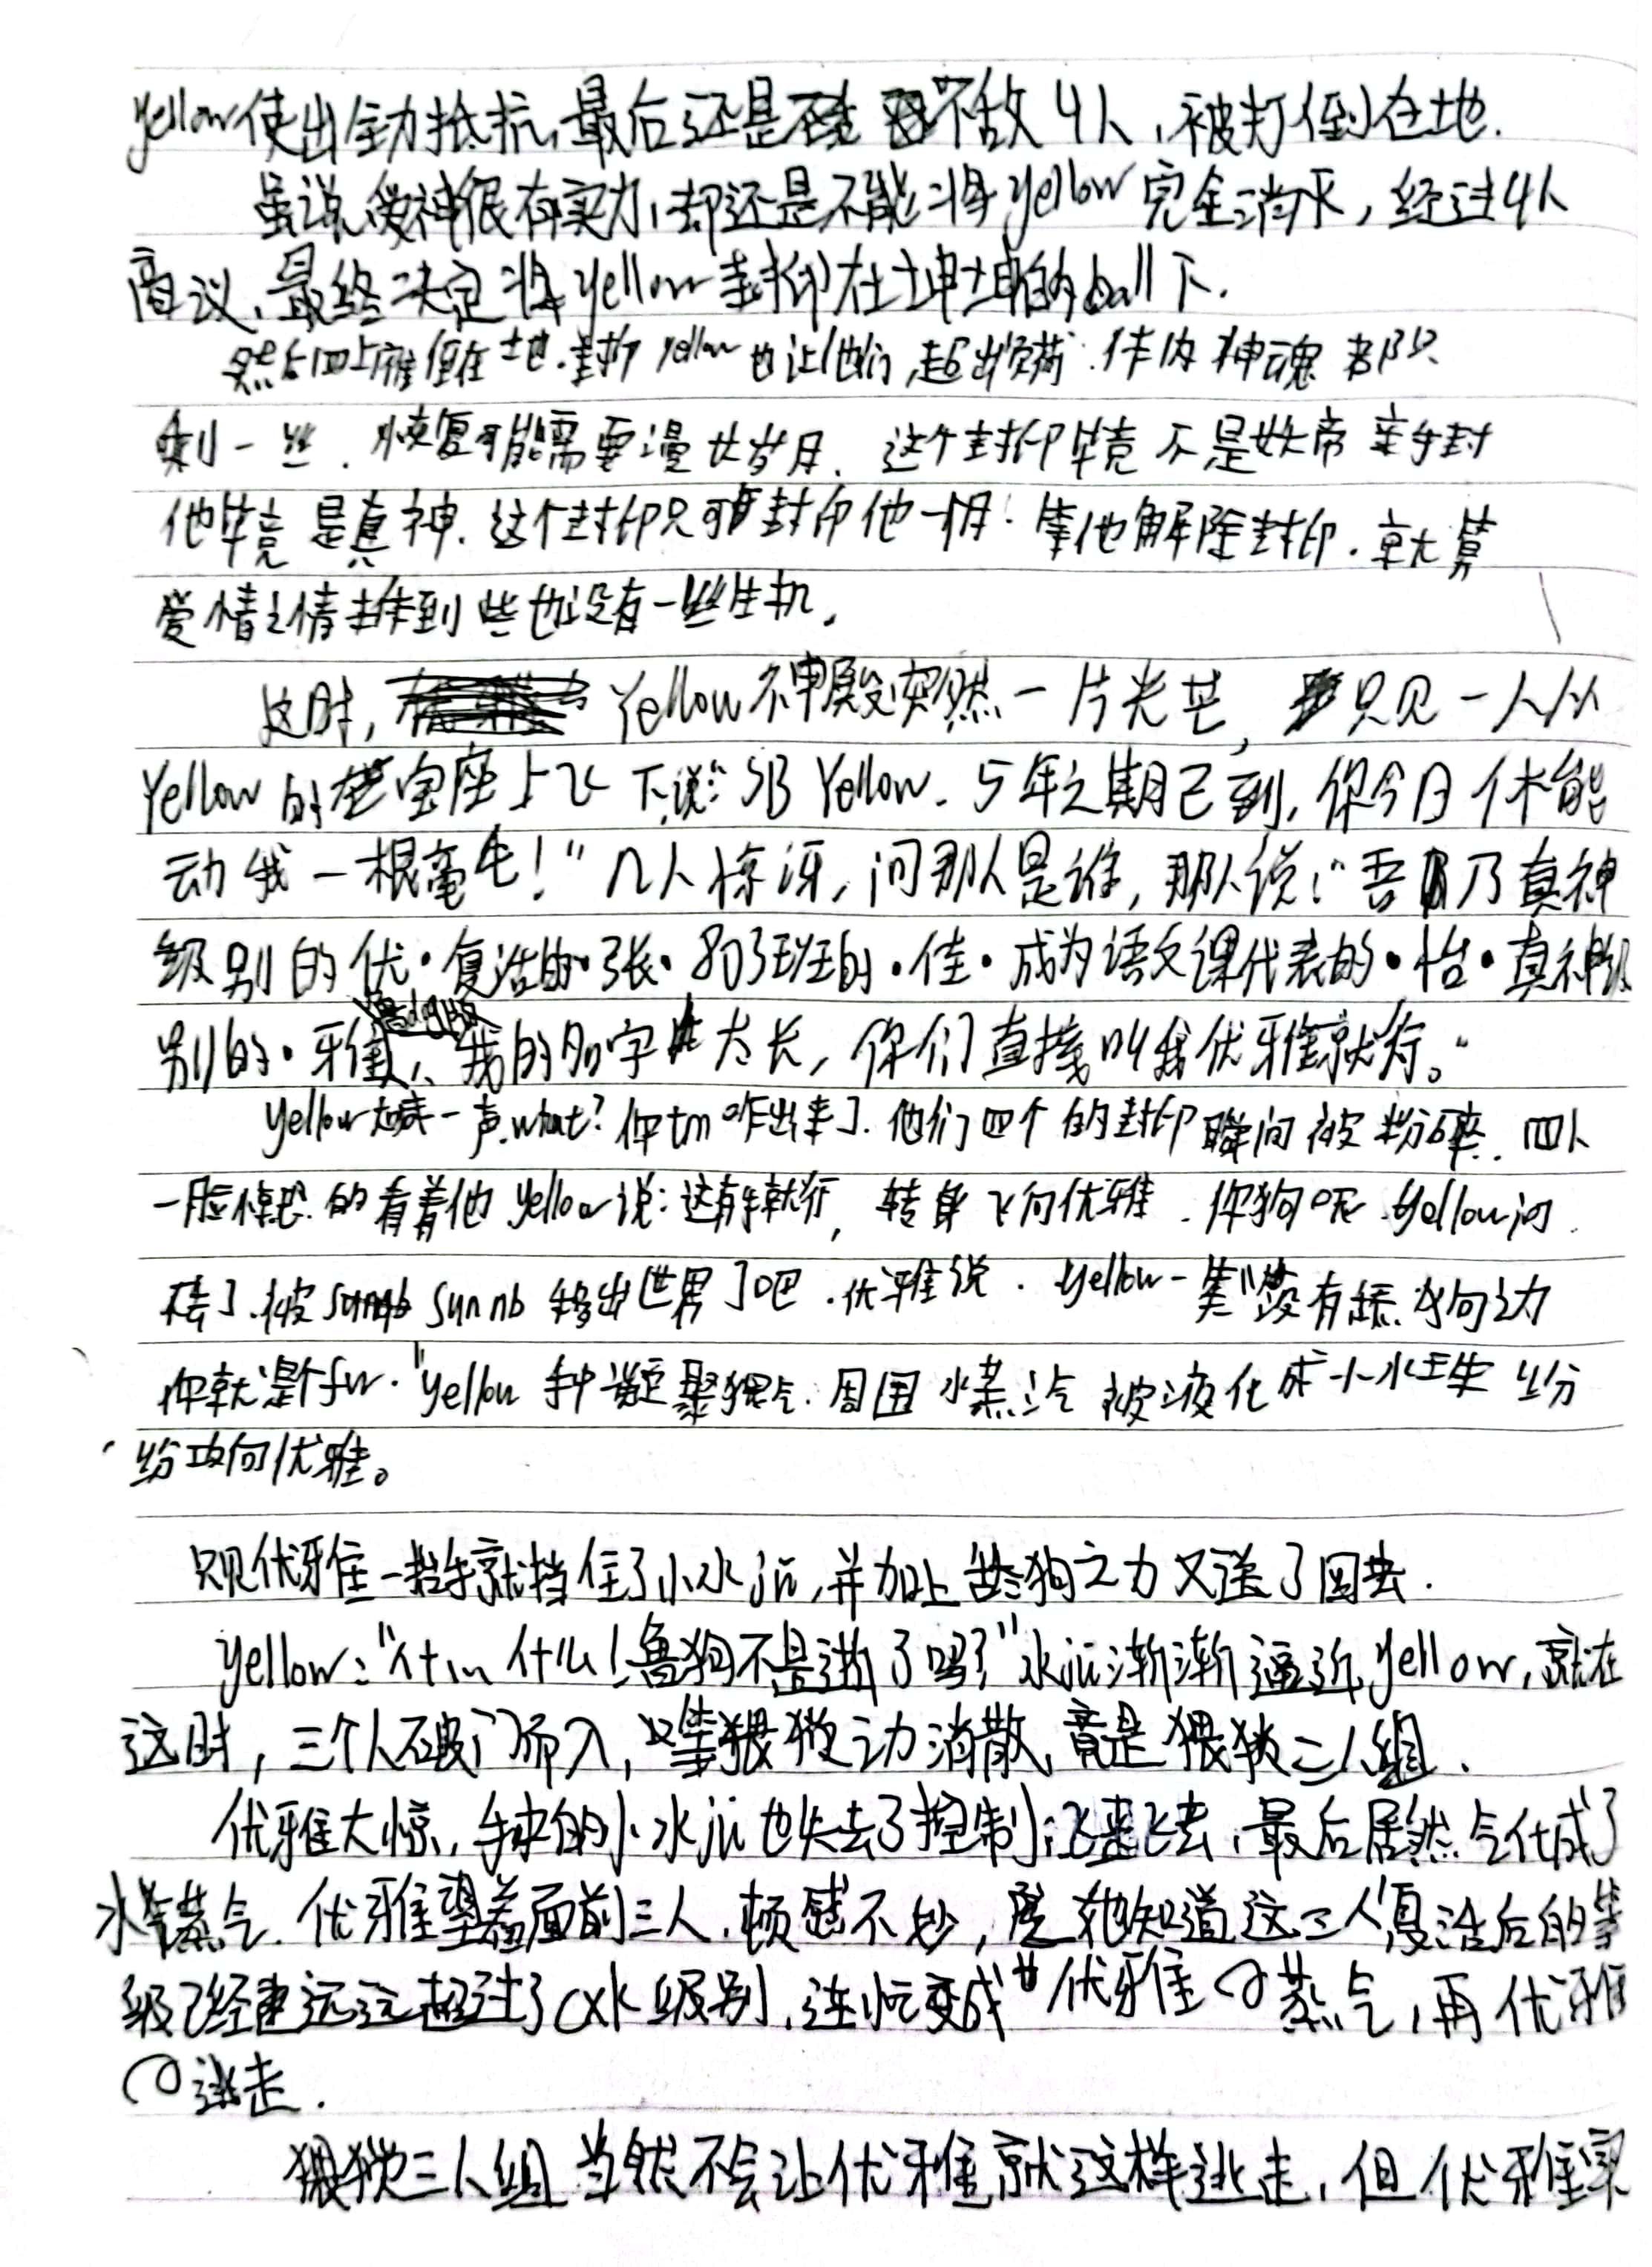 yellow使出全力抵抗,最后还是不敌4人,被打倒在地.
虽说神很有实力,却还是不能将yellow完全消灭,经过4人
商议,最终决定将yellow封印在坤坤的ball下.
然后四人瘫倒在地.封印yellow也让他们超出负荷.体内神魂都只
剩一丝.恢复可能需要漫长岁月.这个封印毕竟不是大帝亲手封
他毕竟是真神.这个封印只可封印他一月.等他解除封印.就算
爱情之情推到些也没有一丝生机.
这时,Yellow神殿突然一片光芒,只见一人从
Yellow的宝座上飞下,说:"SB Yellow.5年之期已到,你今日休能
动我一根毫毛!"几人惊讶,问那人是谁,那人说:"吾乃真神
级别的优·复活的·张·803班的·佳·成为语文课代表的·怡·真神级
别的·雅,我的名字太长,你们直接叫我优雅就行。"
yellow大喊一声.what?你tm咋出来了.他们四个的封印瞬间被粉碎.四人
一脸惊恐的看着他yellow说:这有手就行,转身飞向优雅.你狗呢.yellow问.
被sun nb移出世界了吧.优雅说.yellow一笑"没有狗之力
你就是个fw."yellow手中凝聚猥气.周围水蒸汽被液化成小水珠纷
纷攻向优雅。
只见优雅一抬手就挡住了小水jii,并加上狗之力又送了回去.
yellow:"什tm什么!鲁狗不是逝了吗?"水jii渐渐逼近yellow,就在
这时,三个人破门而入,等猥琐之力消散,竟是猥琐三人组.
优雅大惊,手中的小水jii也失去了控制,飞来飞去,最后居然气化成了
水蒸气.优雅望着面前三人,顿感不妙,她知道这三人复活后的等
级已经远远超过了cxk级别,连忙变成"优雅の蒸气,再优雅
の逃走.
猥琐三人组当然不会让优雅就这样逃走,但优雅